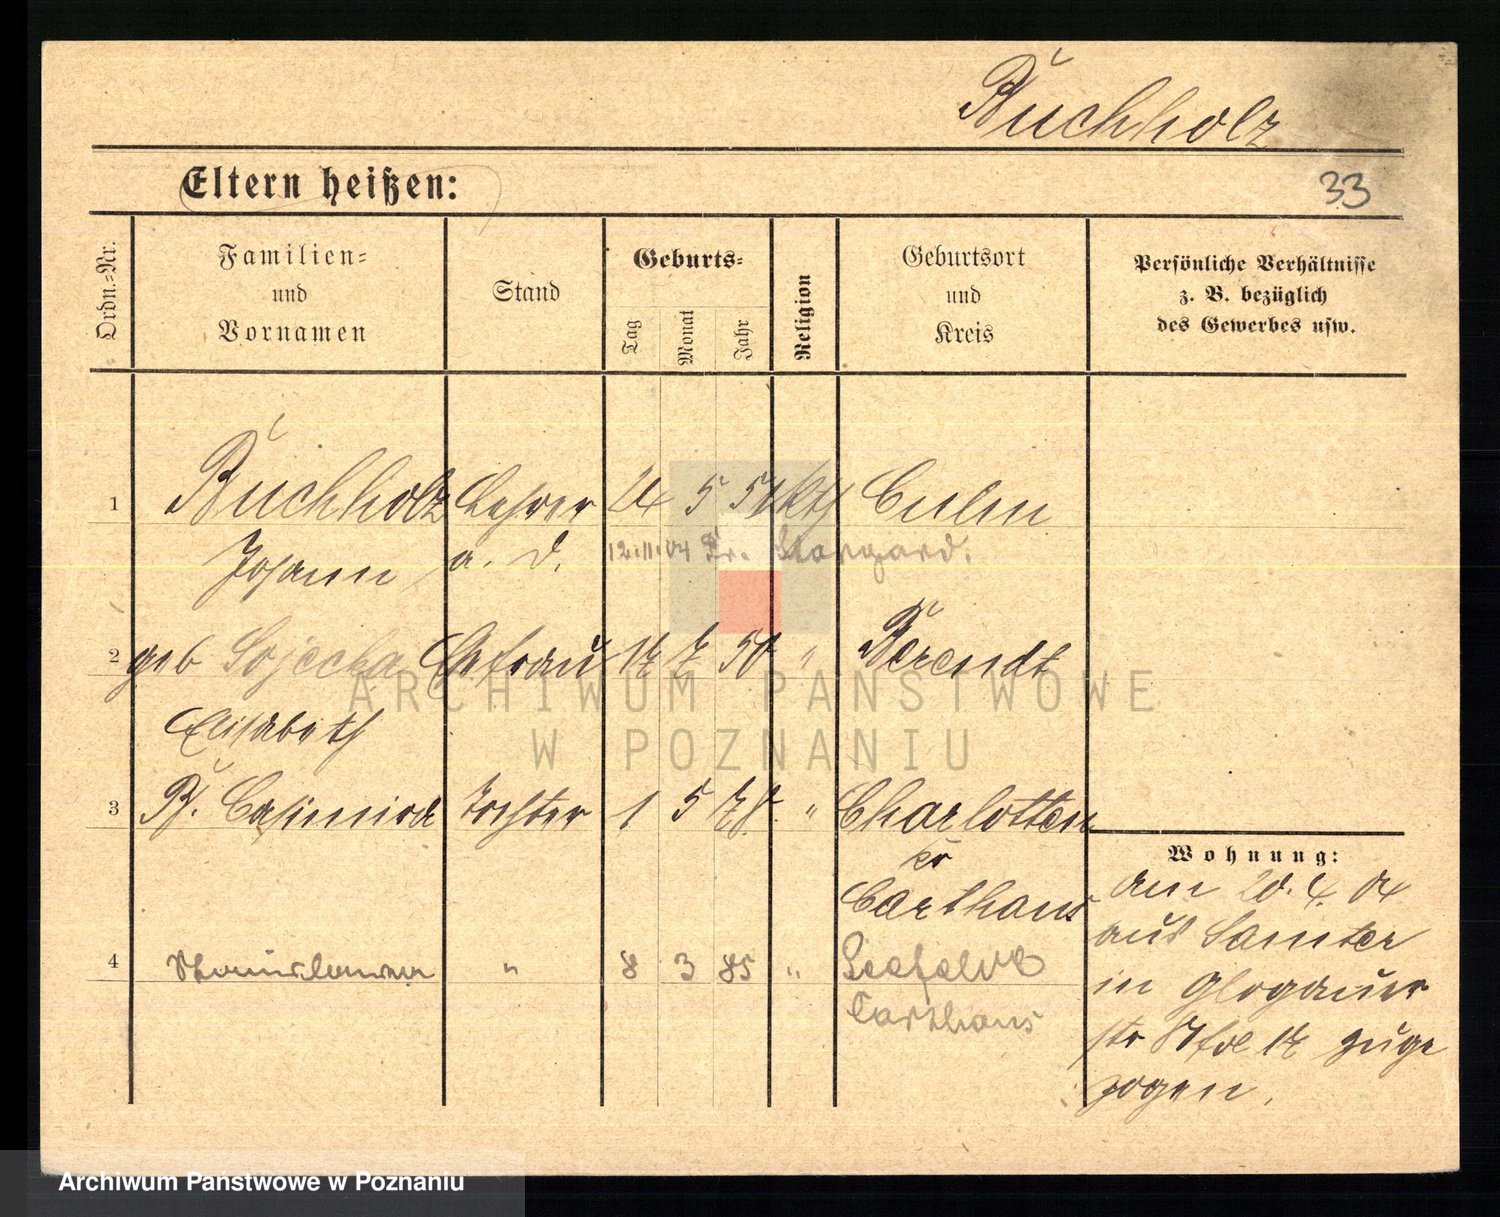 Buchholz
Eltern heißen:
33
Ordn.-Nr.
Familien-
und
Vornamen
Stand
Geburts-
Tag
Monat
Jahr
Religion
Geburtsort
und
Kreis
Persönliche Verhältnisse
z. B. bezüglich
des Gewerbes usw.
1 Buchholz Lehrer 24 5 51 kth Culm
Johann a. D. 12.11.04 Pr. Stargard.
2 geb Ehefrau 17 7 50 " Berendt
Elisabeth
3 B. Casimira Tochter 1 5 78. " Charlotten
Kr
Carthaus
4 Stanislawa " 8 3 85 " Seefeld
Carthaus
Wohnung:
am 20.4.04
aus Samter
in Glogauer
str 17 zuge
zogen.
ARCHIWUM PAŃSTWOWE
W POZNANIU
Archiwum Państwowe w Poznaniu